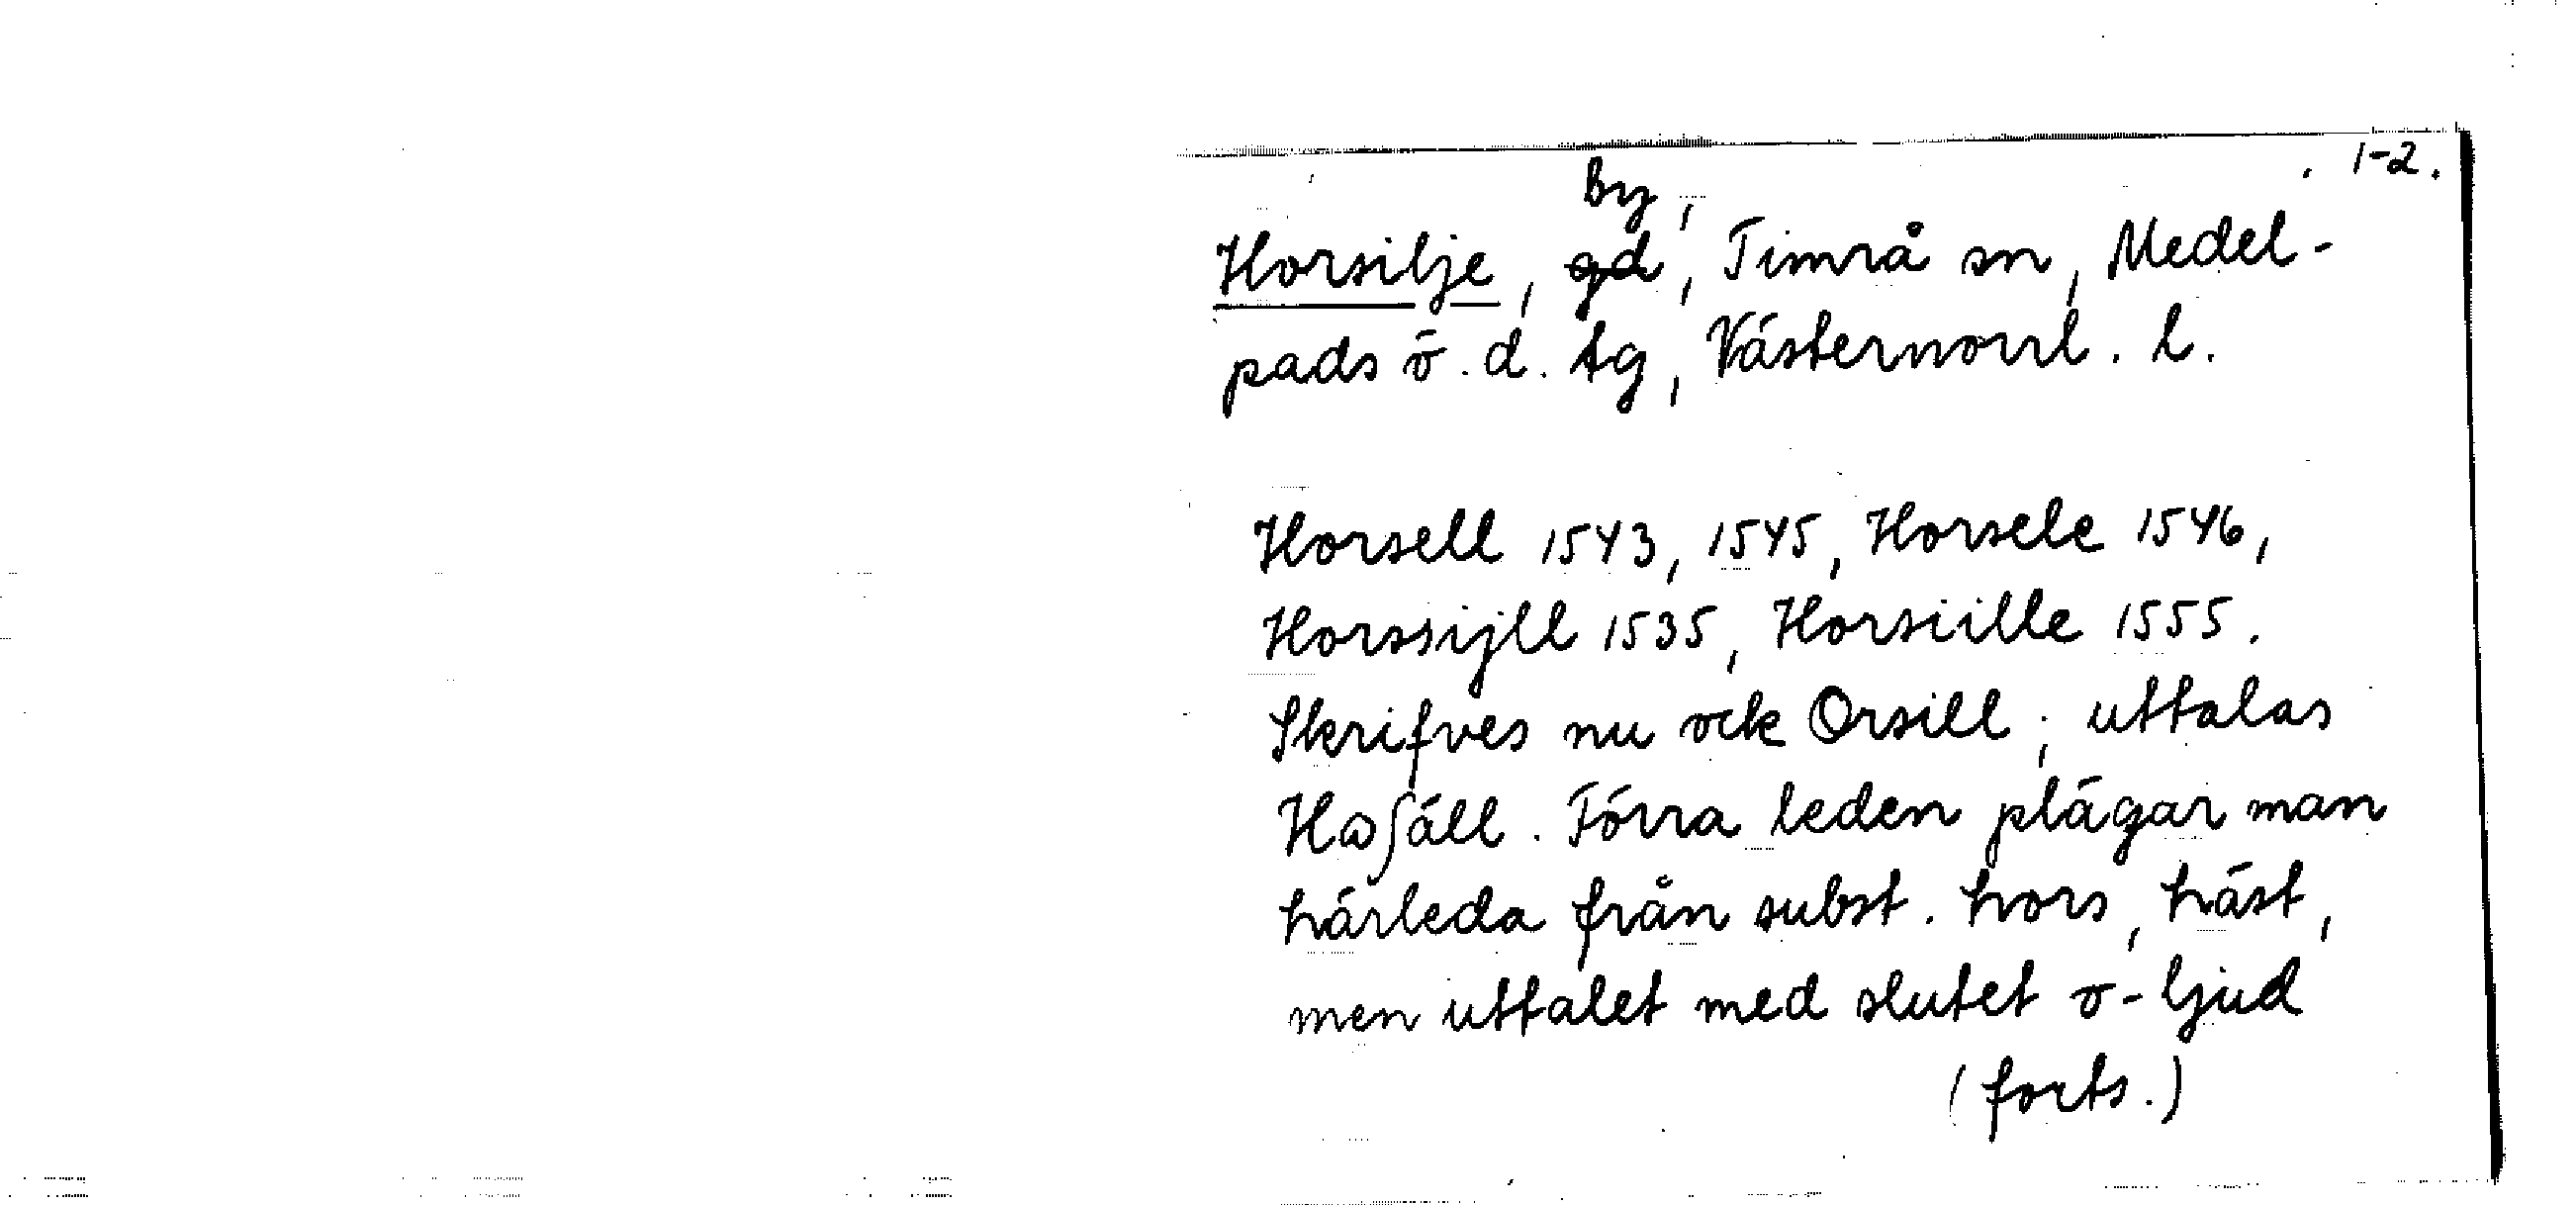 1-2.
by,
Horsilje, gd, Timrå sn, Medel-
pads ö. d. tg, Västernorrl. l.
Horsell 1543, 1545, Horsele 1546,
Horssijll 1535, Horsiille 1555.
Skrifves nu ock Orsill; uttalas
Hoʃäll. Förra leden plägar man
härleda från subst. hors, häst,
men uttalet med slutet o-ljud
(forts.)